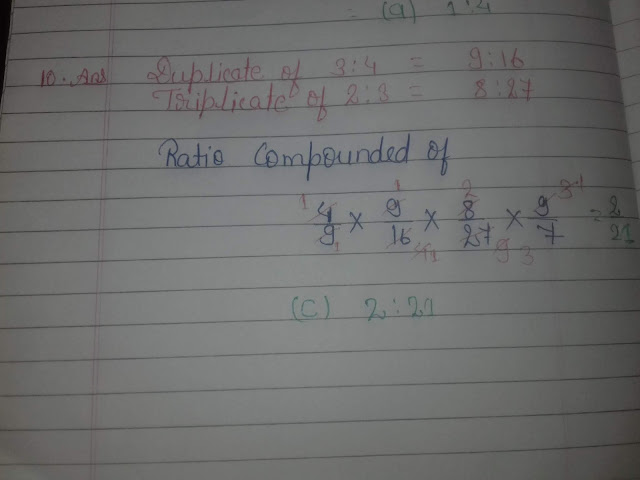 = (a) 1:4
10. Ans Duplicate of 3:4 = 9:16
Triplicate of 2:3 = 8:27
Ratio Compounded of
4/9 × 9/16 × 8/27 × 9/7 = 2/21
(C) 2:21